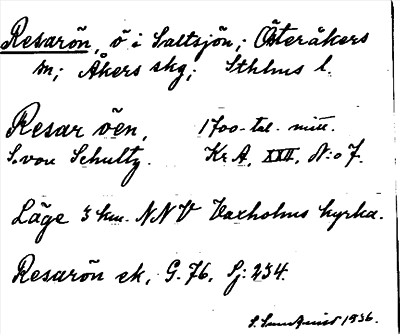 Resarön, ö i Saltsjön; Österåkers
sn; Åkers skg; Sthlms l.
Resar öen, 1700-tal. mitt.
S. von Schultz. Kr A, XXII, N:o 7.
Läge 3 km. NNV Vaxholms kyrka.
Resarön ek, G. 76, Sj: 234.
1936.